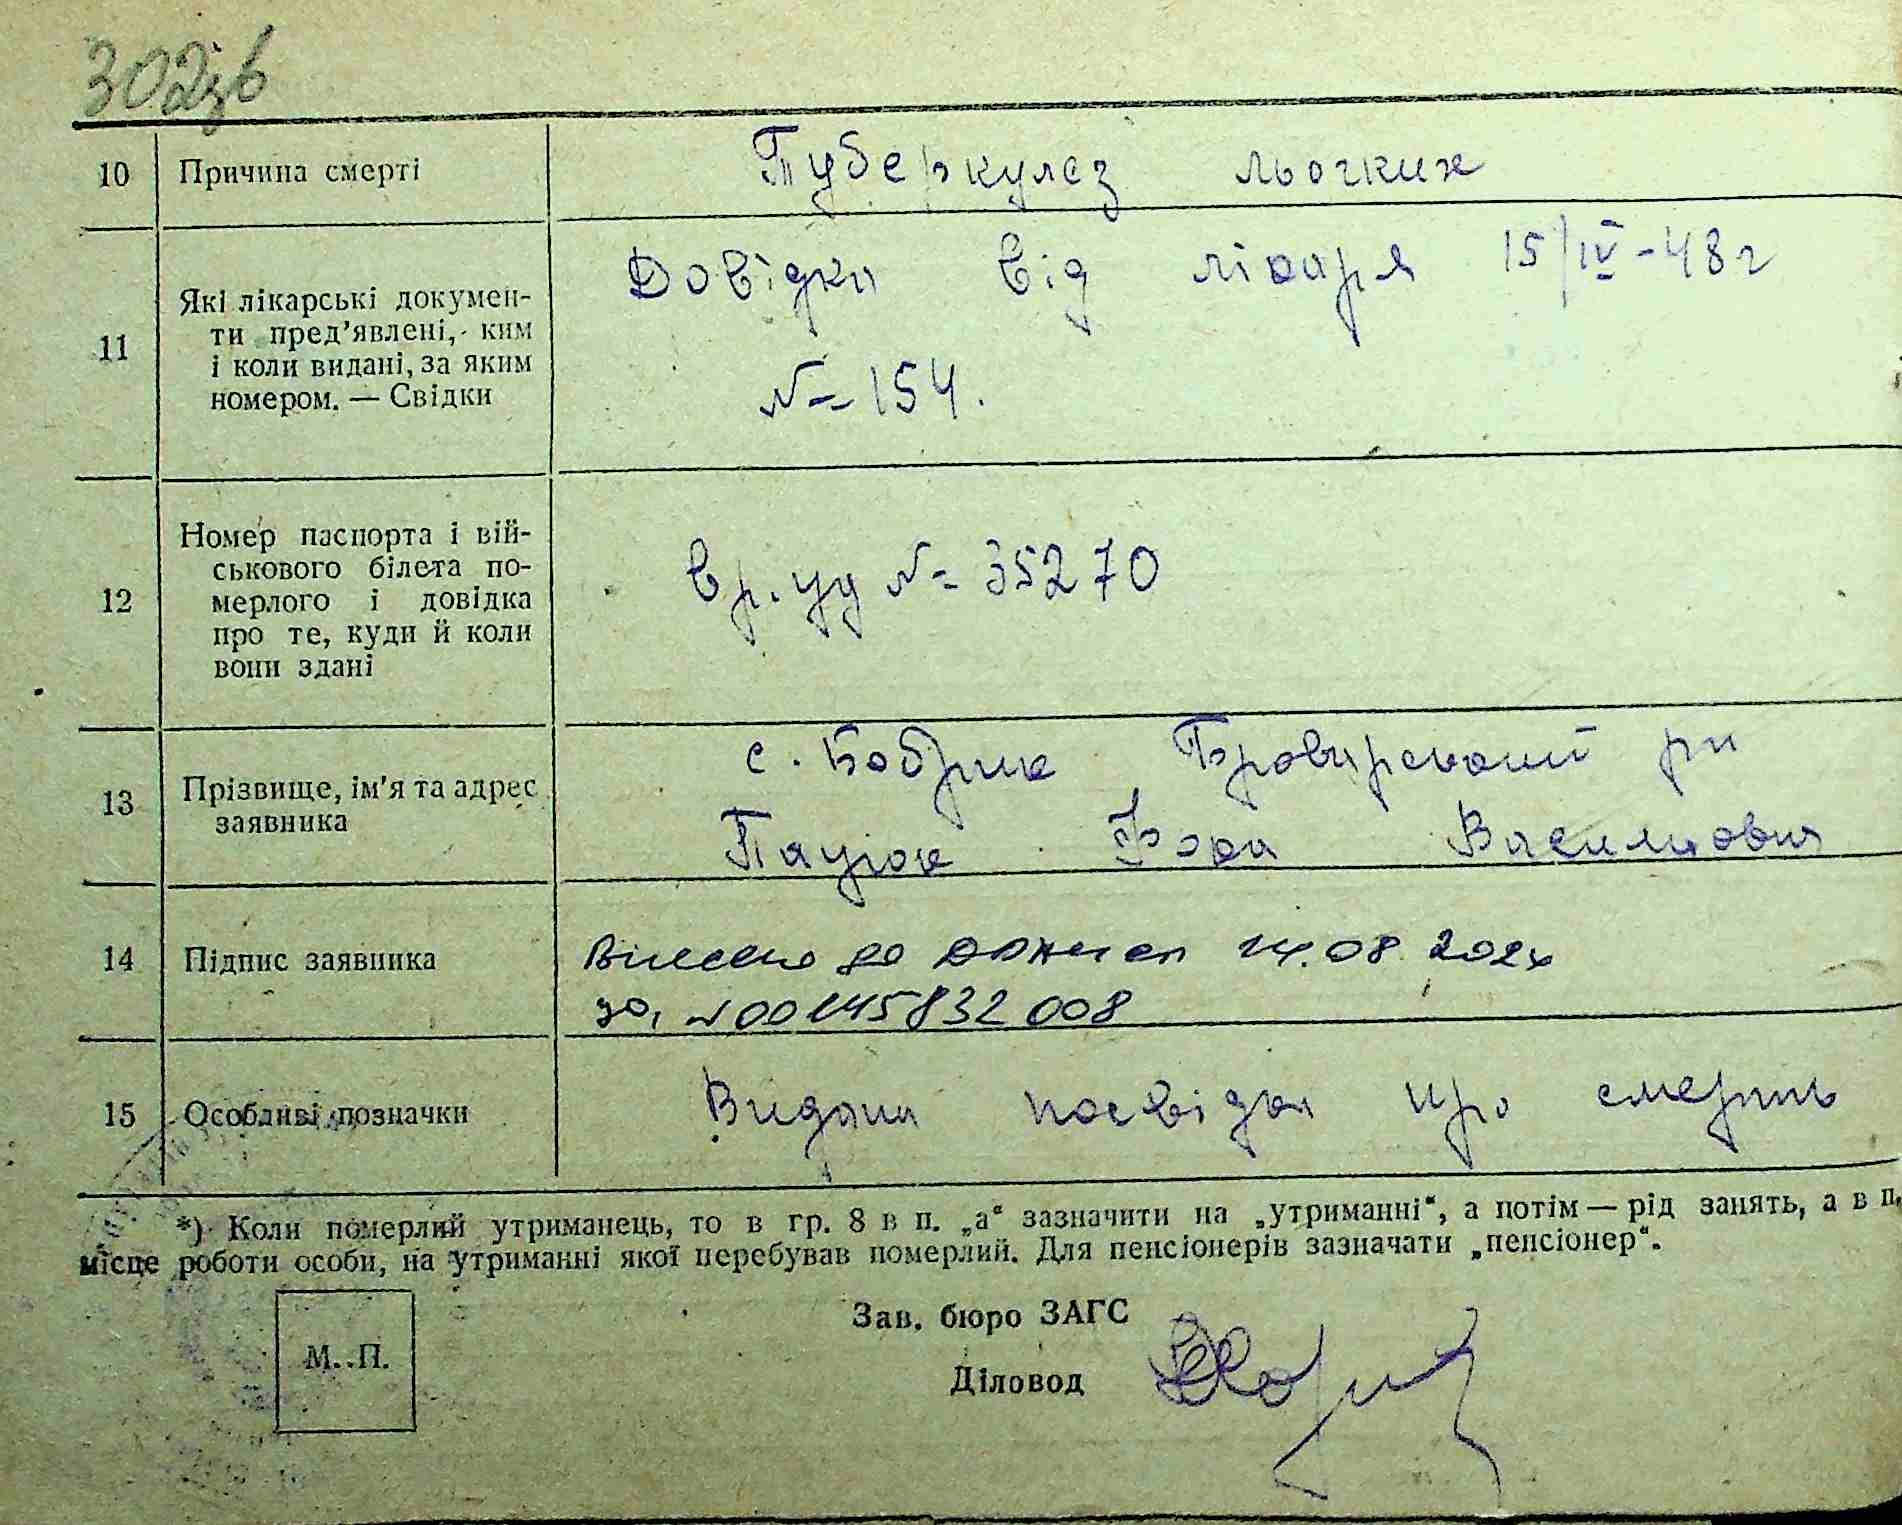 302зв
10 Причина смерті Туберкулез льогких
11 Які лікарські документи пред'явлені, ким і коли видані, за яким номером. — Свідки
Довідка від лікаря 15/IV-48 г
№ 154.
12 Номер паспорта і військового білета померлого і довідка про те, куди й коли вони здані
вр. уд № 35270
13 Прізвище, ім'я та адрес заявника
с. Бобрик Броварський рн
Пацюк Фока Василиович
14 Підпис заявника
Внесено до ДРАЦСГ 14.08 2024
за № 00145832008
15 Особливі позначки Видано посвідка про смерть
*) Коли померлий утриманець, то в гр. 8 в п. „а“ зазначити на „утриманні“, а потім — рід занять, а в п.
місце роботи особи, на утриманні якої перебував померлий. Для пенсіонерів зазначати „пенсіонер“.
Зав. бюро ЗАГС
М. П.
Діловод